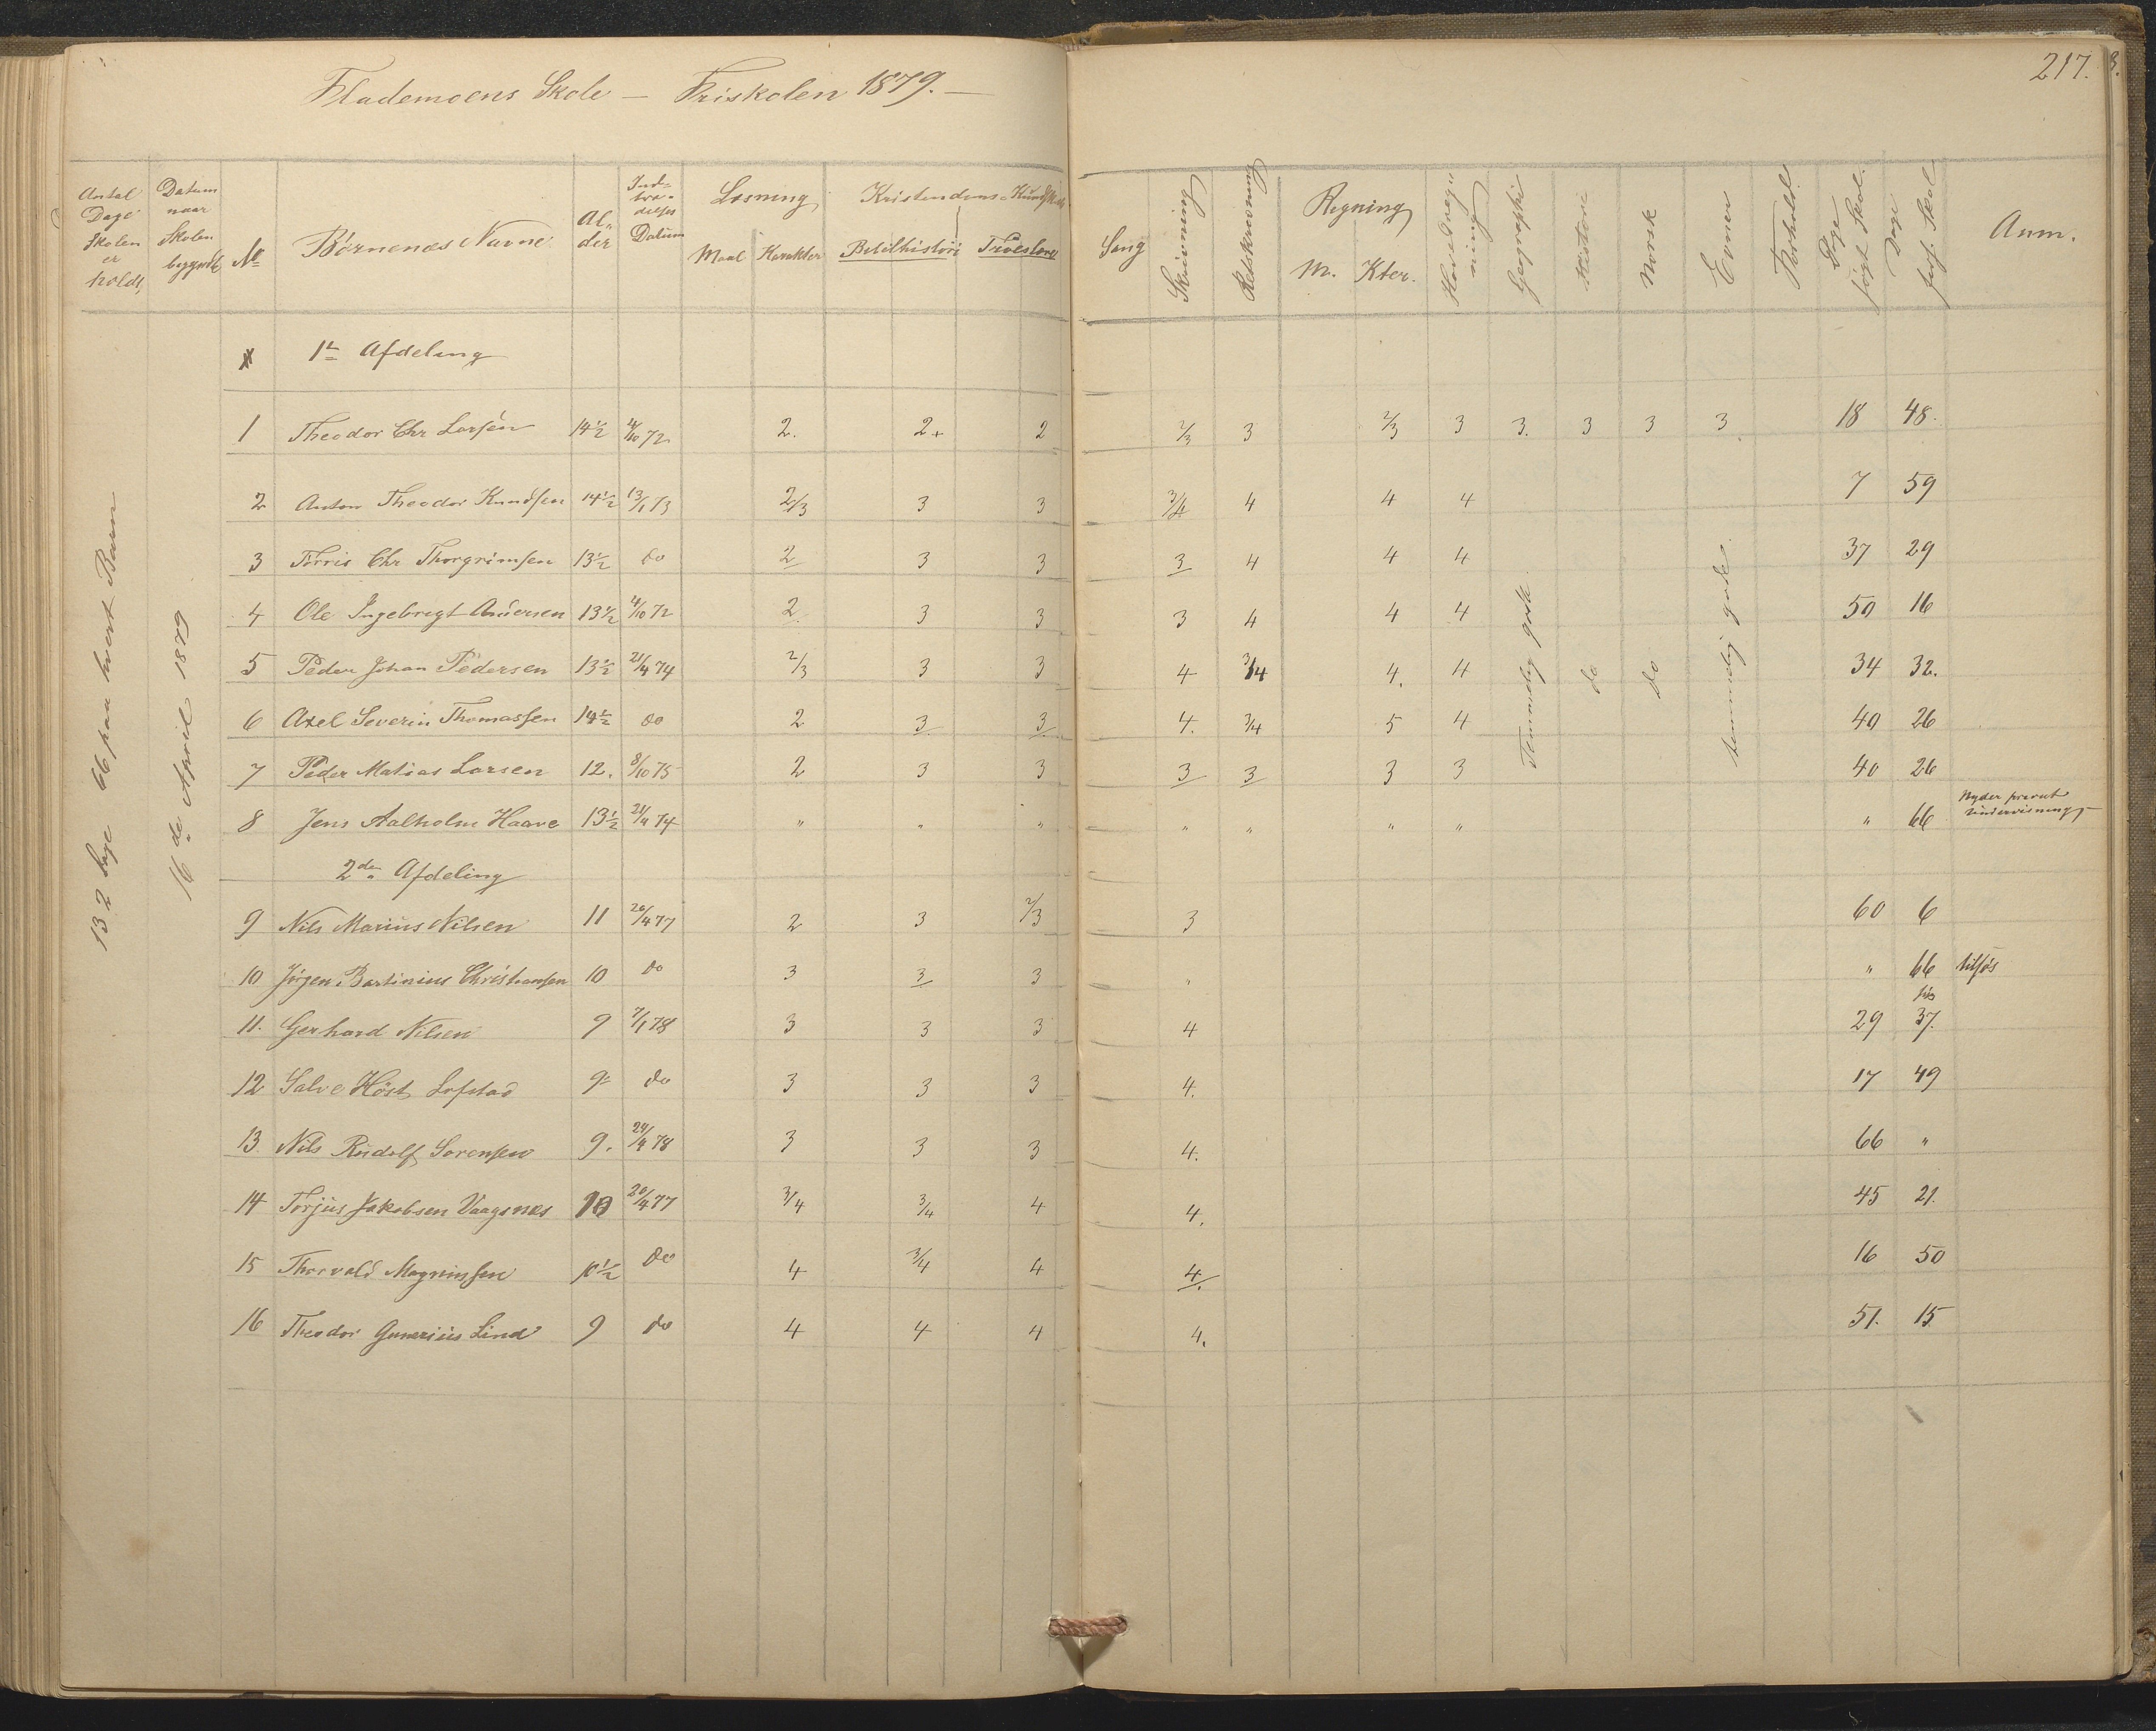 Flademoens Skole — Friskolen 1879. —
217.
Antal Dage Skolen er holdt,
Datum naar Skolen begyndte
No
Børnenes Navne
Al- der
Ind- træ- delses Datum
Læsning
Maal Karakter
Kristendoms-Kundskab
Bibelhistori Troeslære
Sang
Skrivning
Retskrivning
Regning
M. Kter.
Hovedreg- ning
Geographi
Historie
Norsk
Evner
Forhold
Dage søgt Skol.
Dage fors. Skol
Anm.
132 Dage 66 paa hvert Barn
16de April 1879
1ste Afdeling
1 Theodor Chr Larsen 14½ 4/10 72 2. 2+ 2 2/3 3 2/3 3 3. 3 3 3 18 48.
2 Anton Theodor Knudsen 14½ 13/1 73 2/3 3 3 3/4 4 4 4 7 59
3 Tørris Chr Thorgrimsen 13½ do 2 3 3 3 4 4 4 37 29
4 Ole Ingebregt Andersen 13½ 4/10 72 2 3 3 3 4 4 4 50 16
5 Peder Johan Pedersen 13½ 21/4 74 2/3 3 3 4 3/4 4. 4 34 32.
6 Axel Severin Thomassen 14½ do 2 3 3 4. 3/4 5 4 40 26
7 Peder Matias Larsen 12. 8/10 75 2 3 3 3 3 3 3 40 26
Temmelig gode. do do temmelig gode.
8 Jens Aalholm Haave 13½ 21/4 74 " " " " " " " " 66 Nyder privat Undervisning,
2den Afdeling
9 Nils Marius Nilsen 11 20/4 77 2 3 2/3 3 60 6
10 Jørgen Bartinius Christiansen 10 do 3 3 3 " " 66 tilsøs
11. Gerhard Nilsen 9 7/1 78 3 3 3 4 29 37.
12 Salve Høst Lofstad 9 do 3 3 3 4. 17 49
13 Nils Rudolf Sørensen 9. 24/4 78 3 3 3 4. 66 "
14 Torjus Jakobsen Vaagsnes 10 20/4 77 3/4 3/4 4 4. 45 21.
15 Thorvald Magnussen do 4 3/4 4 4. 16 50
16 Theodor Gunerius Lind 9 do 4 4 4 4. 51. 15